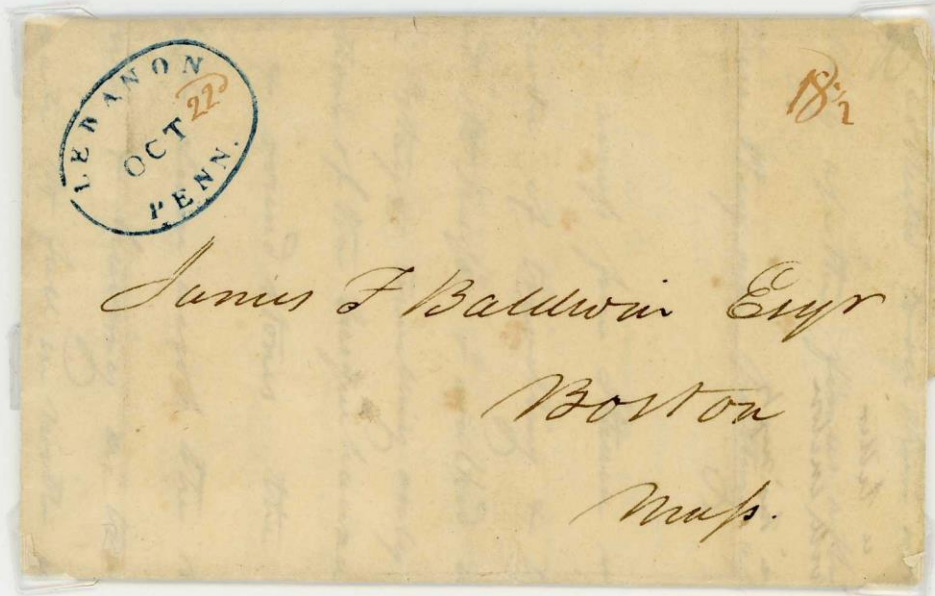 LEBANON
OCT 22
PENN.
18 1/2
James F Baldwin Esqr
Boston
Mass.